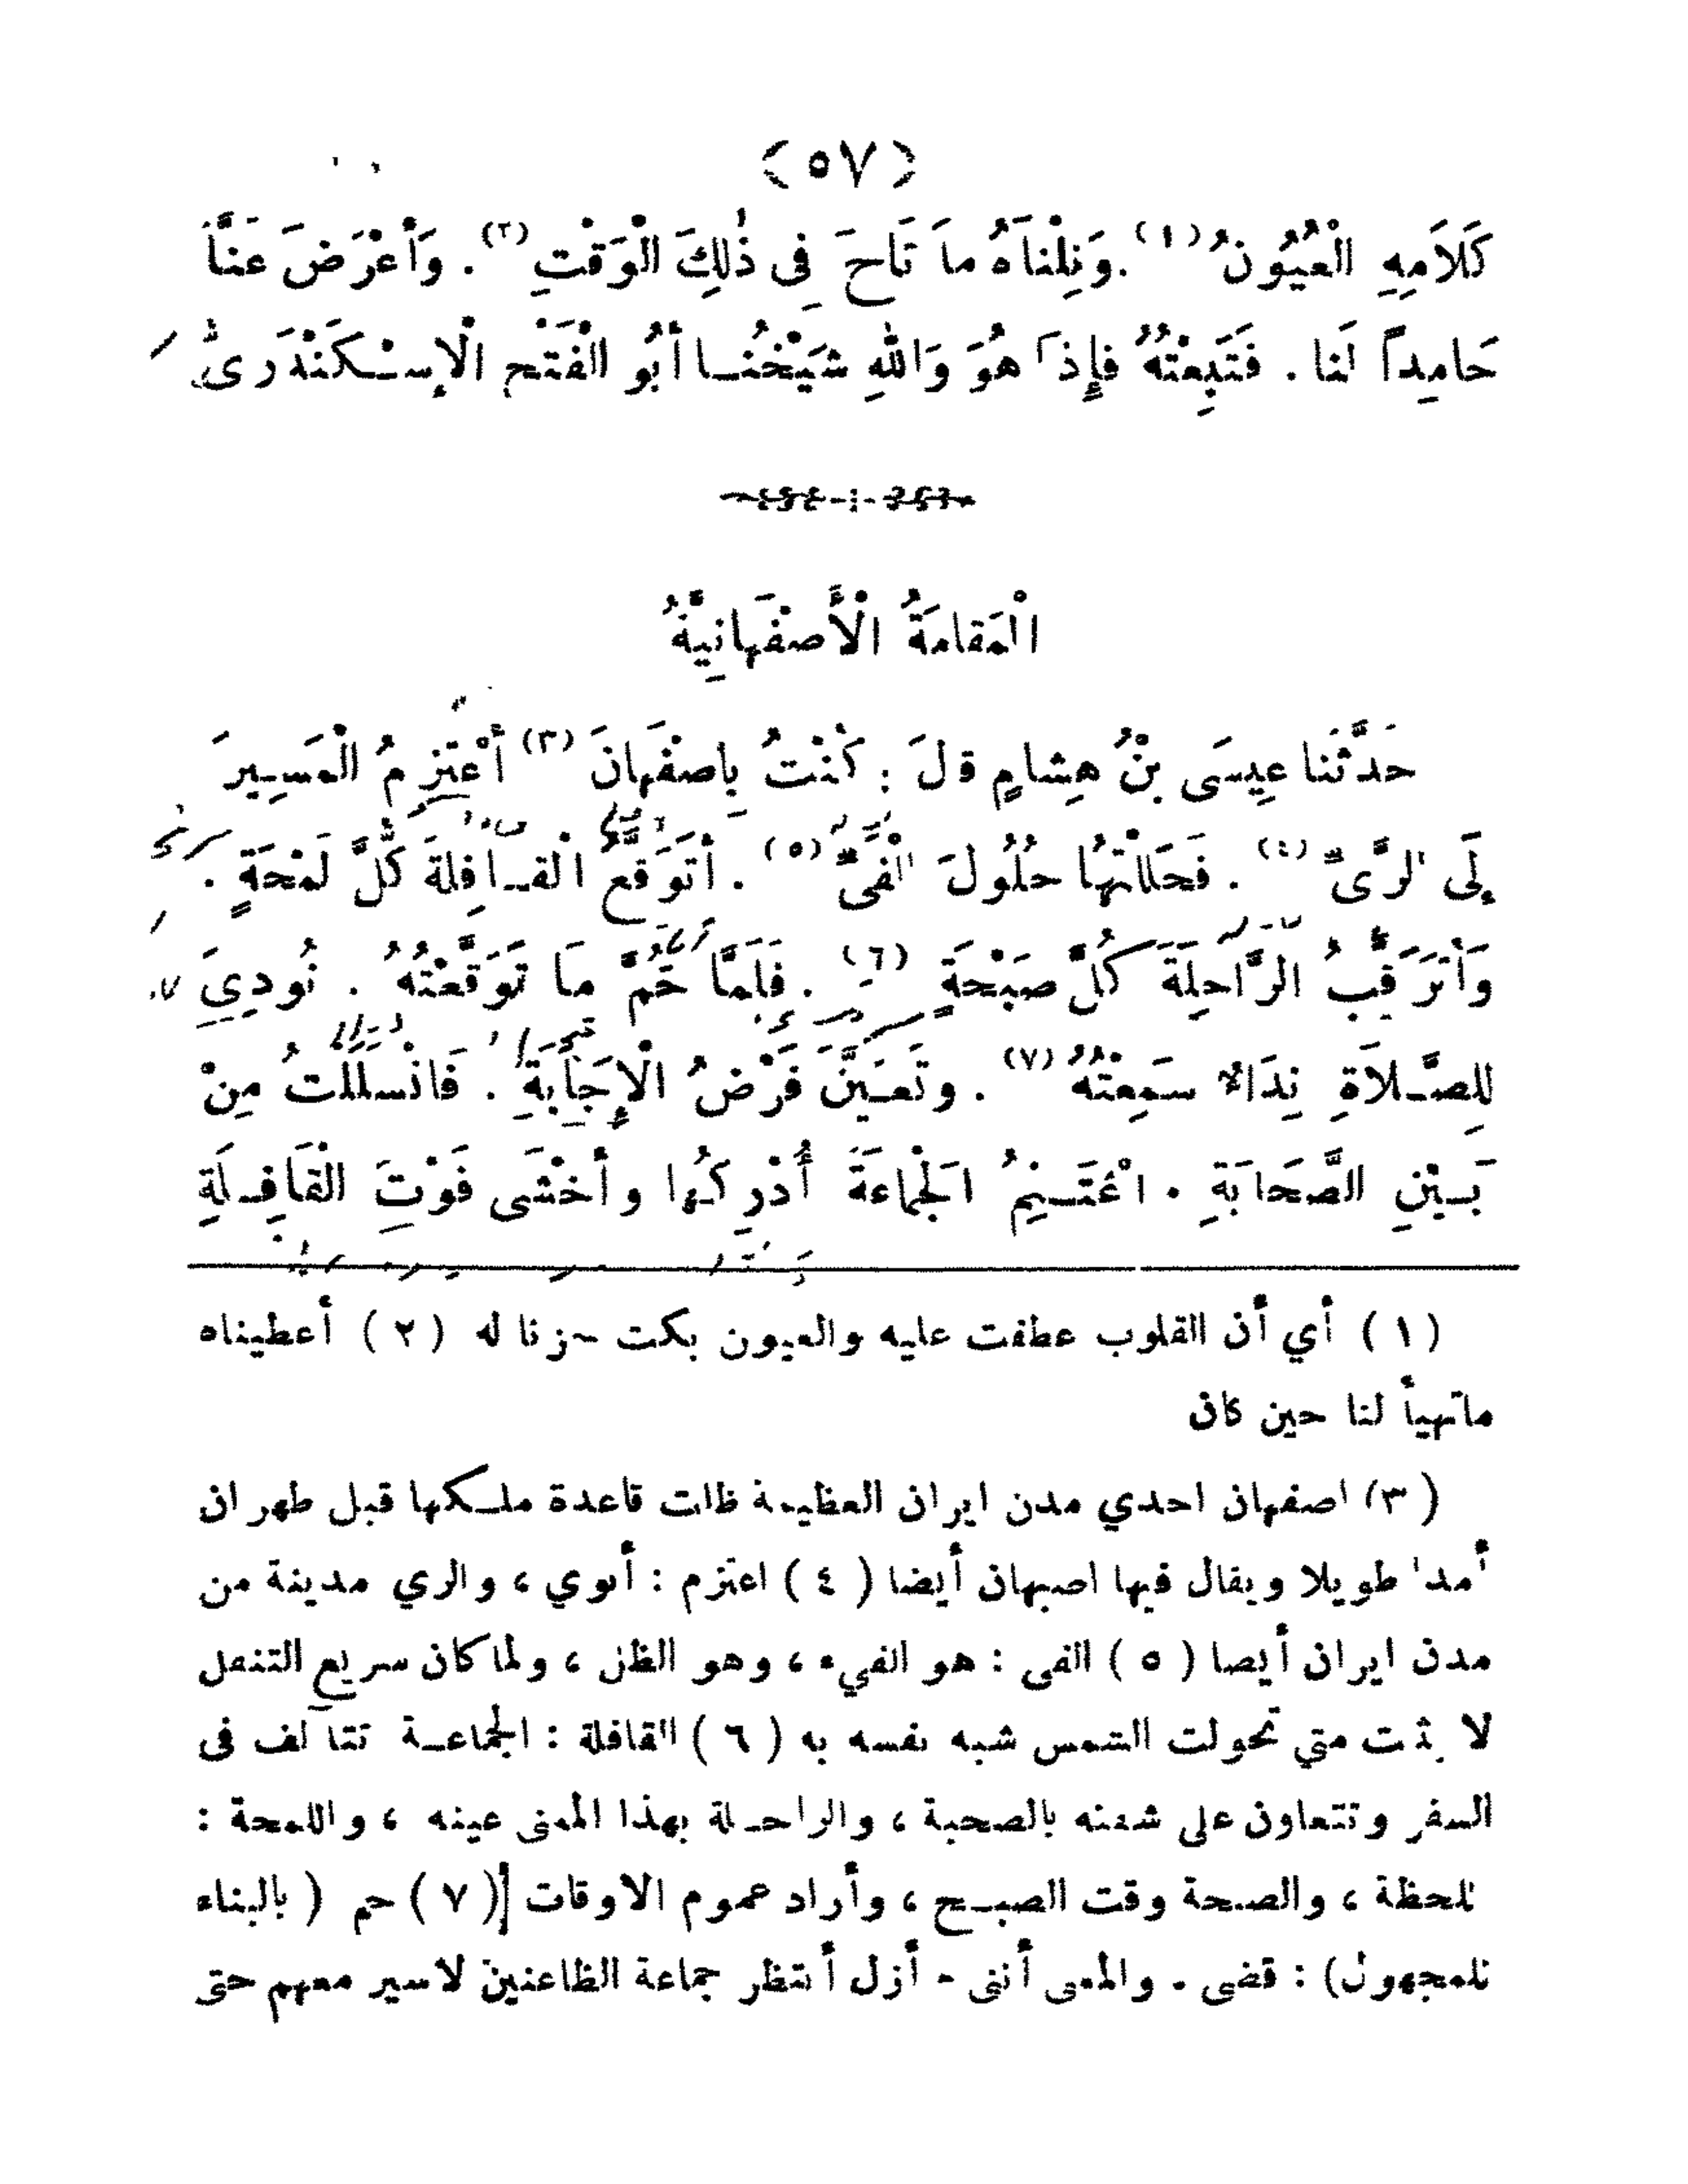 (٥٧)
كَلاَمِهِ الْعُيُونُ (١) . وَنِلْنَاهُ مَا تَاحَ فِى ذٰلِكَ الْوَقْتِ (٢) . وَأَعْرَضَ عَنَّا
حَامِداً لَنا . فَتَبِعْتُهُ فإِذَا هُوَ وَاللهِ شَيْخُنَا أبُو الْفَتْحِ الْإِسْكَنْدَرِىُّ
الْمَقامَةُ الْأَصْفَهانِيَّةُ
حَدَّثَنا عِيسَى بْنُ هِشامٍ قلَ : كُنْتُ بِاصْفَهانَ (٣) أعْتَزِمُ الْمَسِيرَ
إِلَى الرَّىِّ (٤) . فَحَلَلْتُهَا حُلُولَ الْفَىِّ (٥) . أتَوَقَّعُ الْقَافِلةَ كُلَّ لَمْحَةٍ .
وَأتَرَقَّبُ الرَّاحِلَةَ كُلَّ صَبْحَةٍ (٦) . فَلَمَّا حُمَّ مَا تَوَقَّعْتُهُ . نُودِىَ
لِلصَّلاَةِ نِدَاءً سَمِعْتُهُ (٧) . وتَعَيَّنَ فَرْضُ الْإِجَابَةِ . فَانْسَلَلْتُ مِنْ
بَيْنِ الصَّحَابَةِ . اغْتَنِمُ الْجَمَاعَةَ أُدْرِكُها وأخْشَى فَوْتَ الْقَافِلَةِ
(١) أي أن القلوب عطفت عليه والعيون بكت حزنا له (٢) أعطيناه
ماتهيأ لنا حين كان
(٣) اصفهان احدي مدن ايران العظيمة ظلت قاعدة ملكها قبل طهران
أمدا طويلا ويقال فيها اصبهان أيضا (٤) اعتزم : أنوي ، والري مدينة من
مدن ايران أيضا (٥) الفى : هو الفيء ، وهو الظل ، ولما كان سريع التنقل
لا يثبت متي تحولت الشمس شبه نفسه به (٦) القافلة : الجماعة تتآلف فى
السفر وتتعاون على شقته بالصحبة ، والراحلة بهذا المعنى عينه ، واللمحة :
اللحظة ، والصبحة وقت الصبح ، وأراد عموم الاوقات (٧) حم ( بالبناء
للمجهول) : قضى . والمعنى أننى لم أزل أنتظر جماعة الظاعنين لاسير معهم حتى